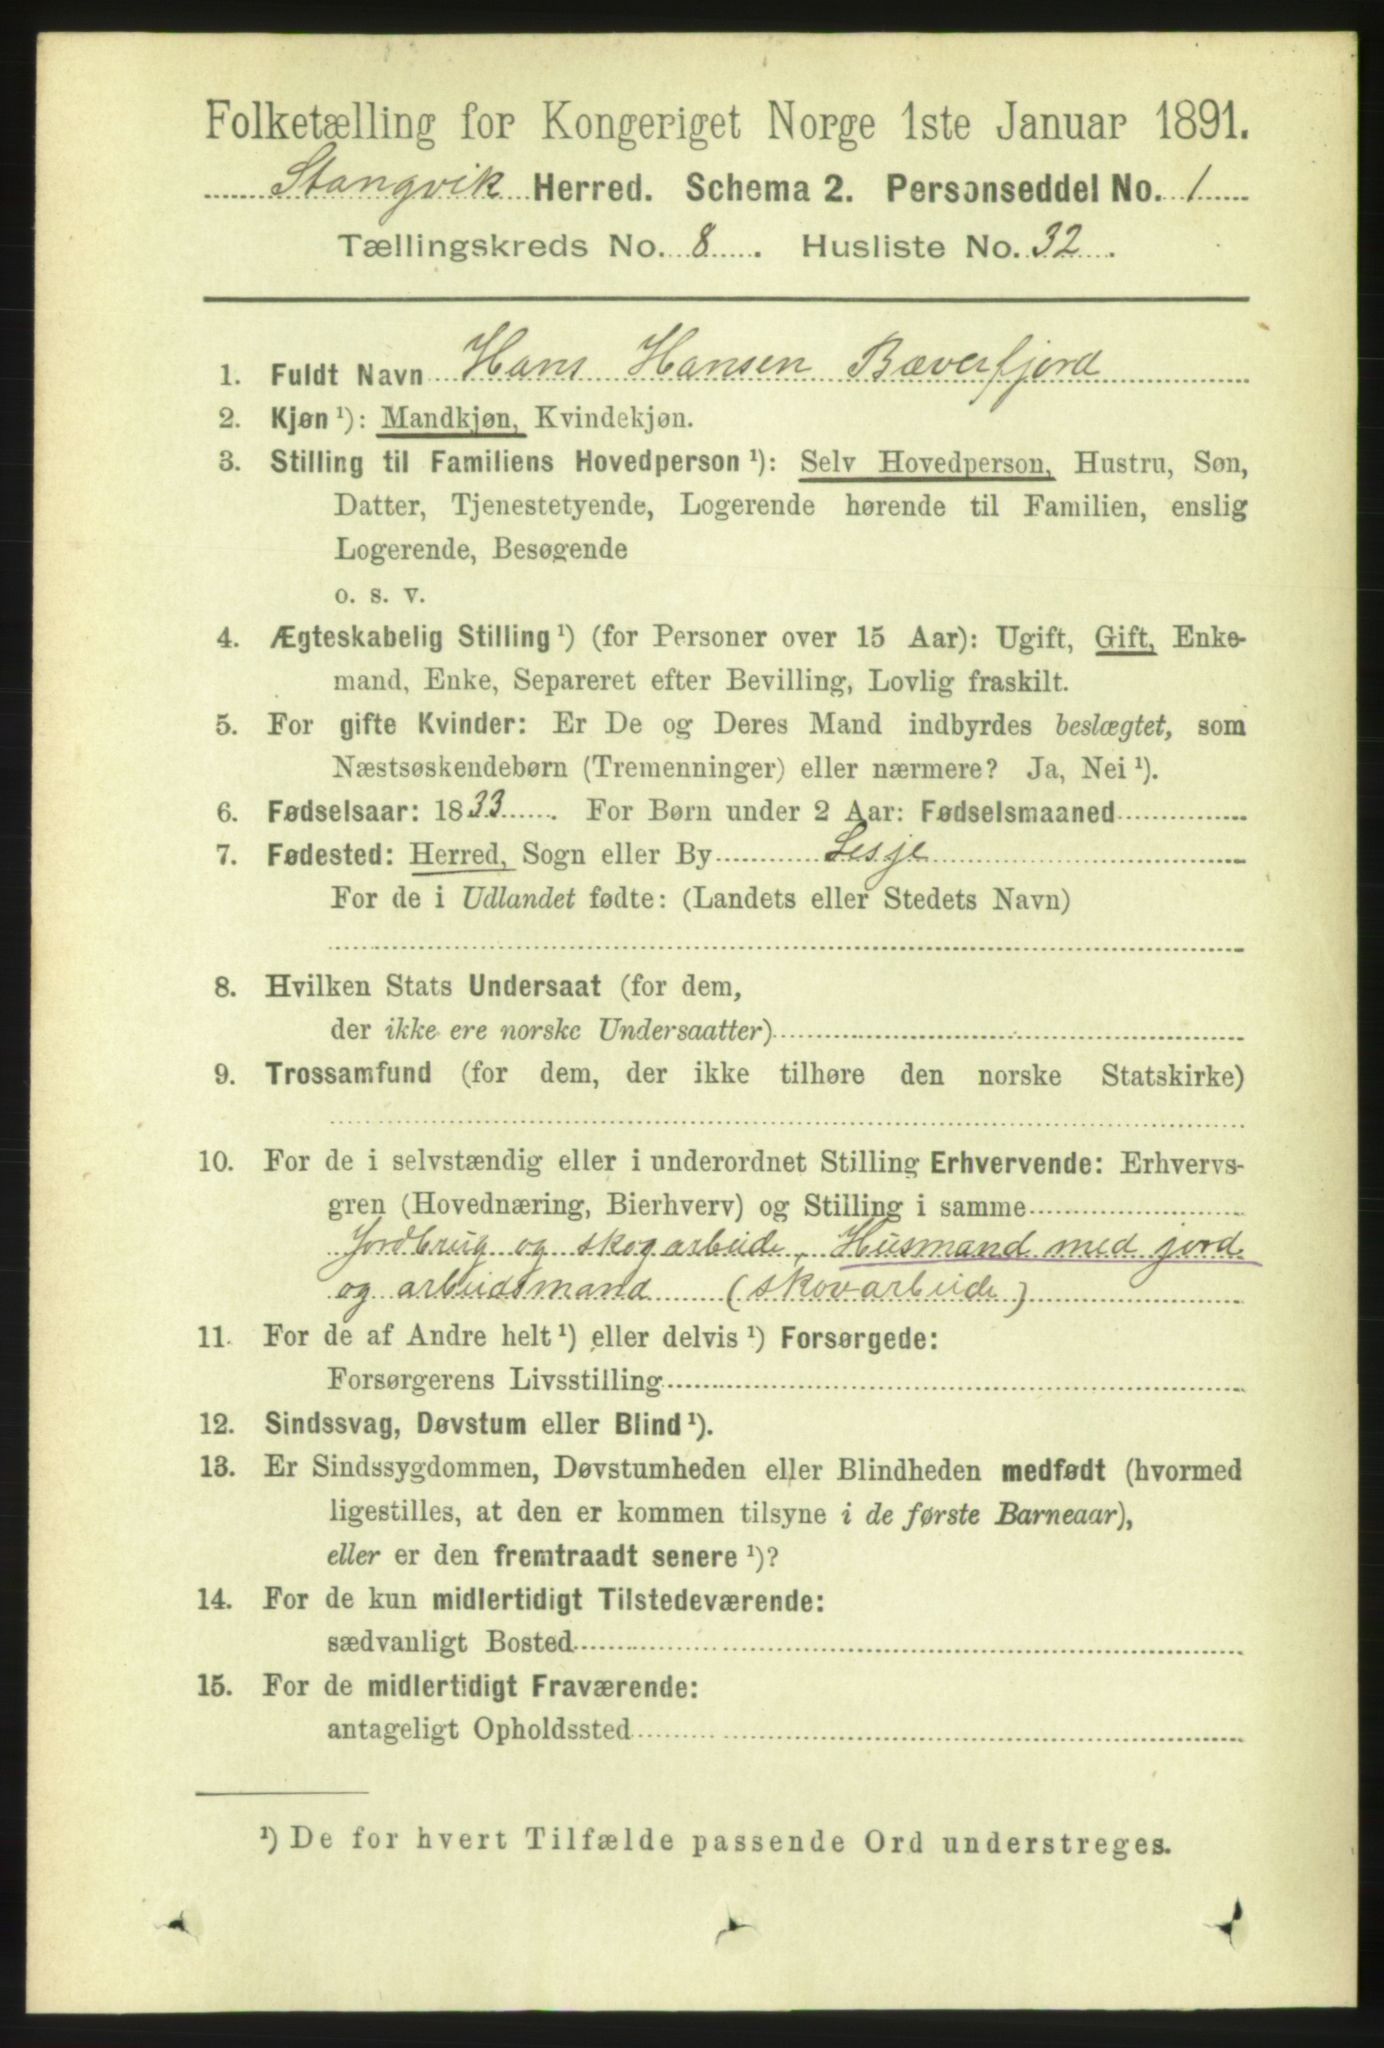 Folketælling for Kongeriget Norge 1ste Januar 1891.
Stangvik Herred. Schema 2. Personseddel No. 1
Tællingskreds No. 8. Husliste No. 32.
1. Fuldt Navn Hans Hansen Bæverfjord
2. Kjøn ¹): Mandkjøn, Kvindekjøn.
3. Stilling til Familiens Hovedperson ¹): Selv Hovedperson, Hustru, Søn,
Datter, Tjenestetyende, Logerende hørende til Familien, enslig
Logerende, Besøgende
o. s. v.
4. Ægteskabelig Stilling ¹) (for Personer over 15 Aar): Ugift, Gift, Enke-
mand, Enke, Separeret efter Bevilling, Lovlig fraskilt.
5. For gifte Kvinder: Er De og Deres Mand indbyrdes beslægtet, som
Næstsøskendebørn (Tremenninger) eller nærmere? Ja, Nei ¹).
6. Fødselsaar: 1833. For Børn under 2 Aar: Fødselsmaaned
7. Fødested: Herred, Sogn eller By Lesje
For de i Udlandet fødte: (Landets eller Stedets Navn)
8. Hvilken Stats Undersaat (for dem,
der ikke ere norske Undersaatter)
9. Trossamfund (for dem, der ikke tilhøre den norske Statskirke)
10. For de i selvstændig eller i underordnet Stilling Erhvervende: Erhvervs-
gren (Hovednæring, Bierhverv) og Stilling i samme
Jordbrug og skogarbeide, Husmand med jord
og arbeidsmand (skovarbeide)
11. For de af Andre helt ¹) eller delvis ¹) Forsørgede:
Forsørgerens Livsstilling
12. Sindssvag, Døvstum eller Blind ¹).
13. Er Sindssygdommen, Døvstumheden eller Blindheden medfødt (hvormed
ligestilles, at den er kommen tilsyne i de første Barneaar),
eller er den fremtraadt senere ¹)?
14. For de kun midlertidigt Tilstedeværende:
sædvanligt Bosted
15. For de midlertidigt Fraværende:
antageligt Opholdssted
¹) De for hvert Tilfælde passende Ord understreges.